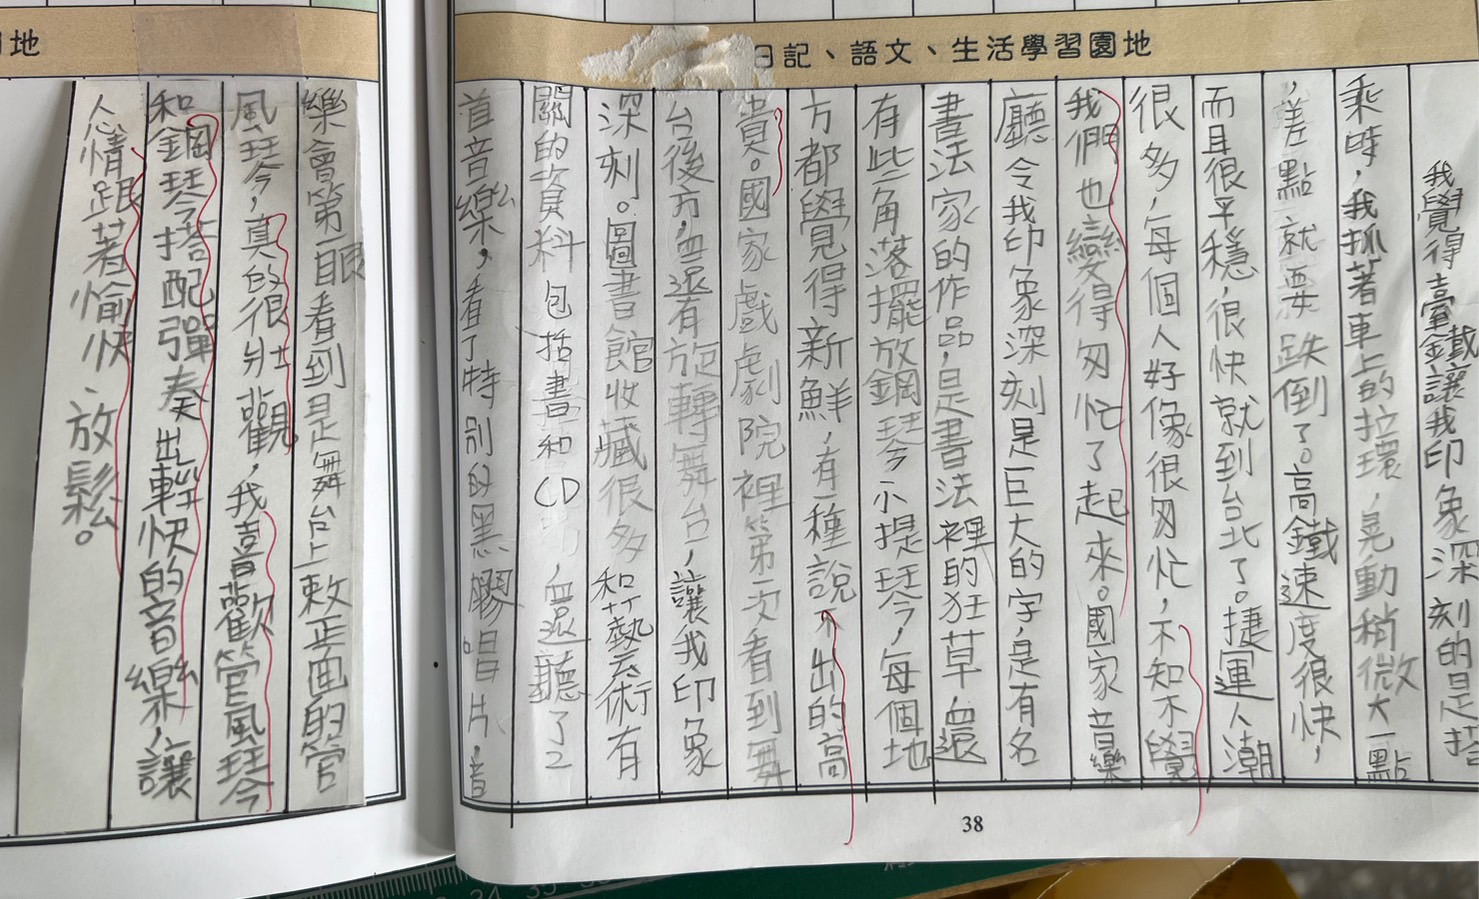 日記、語文、生活學習園地
我覺得臺鐵讓我印象深刻的是搭
乘時，我抓著車上的拉環，晃動稍微大一點
，差點就要跌倒了。高鐵速度很快，
而且很平穩，很快就到台北了。捷運人潮
很多，每個人好像很匆忙，不知不覺
我們也變得匆忙了起來。國家音樂
廳令我印象深刻是巨大的字，是有名
書法家的作品，是書法裡的狂草，還
有些角落擺放鋼琴小提琴，每個地
方都覺得新鮮，有一種說不出的高
貴。國家戲劇院裡第一次看到舞
台後方，還有旋轉舞台，讓我印象
深刻。圖書館收藏很多和藝術有
關的資料包括書和CD，還聽了2
首音樂，看了特別的黑膠唱片，音
38
地
樂會第一眼看到是舞台上整面的管
風琴，真的很壯觀，我喜歡管風琴
和鋼琴搭配彈奏出輕快的音樂，讓
心情跟著愉快、放鬆。